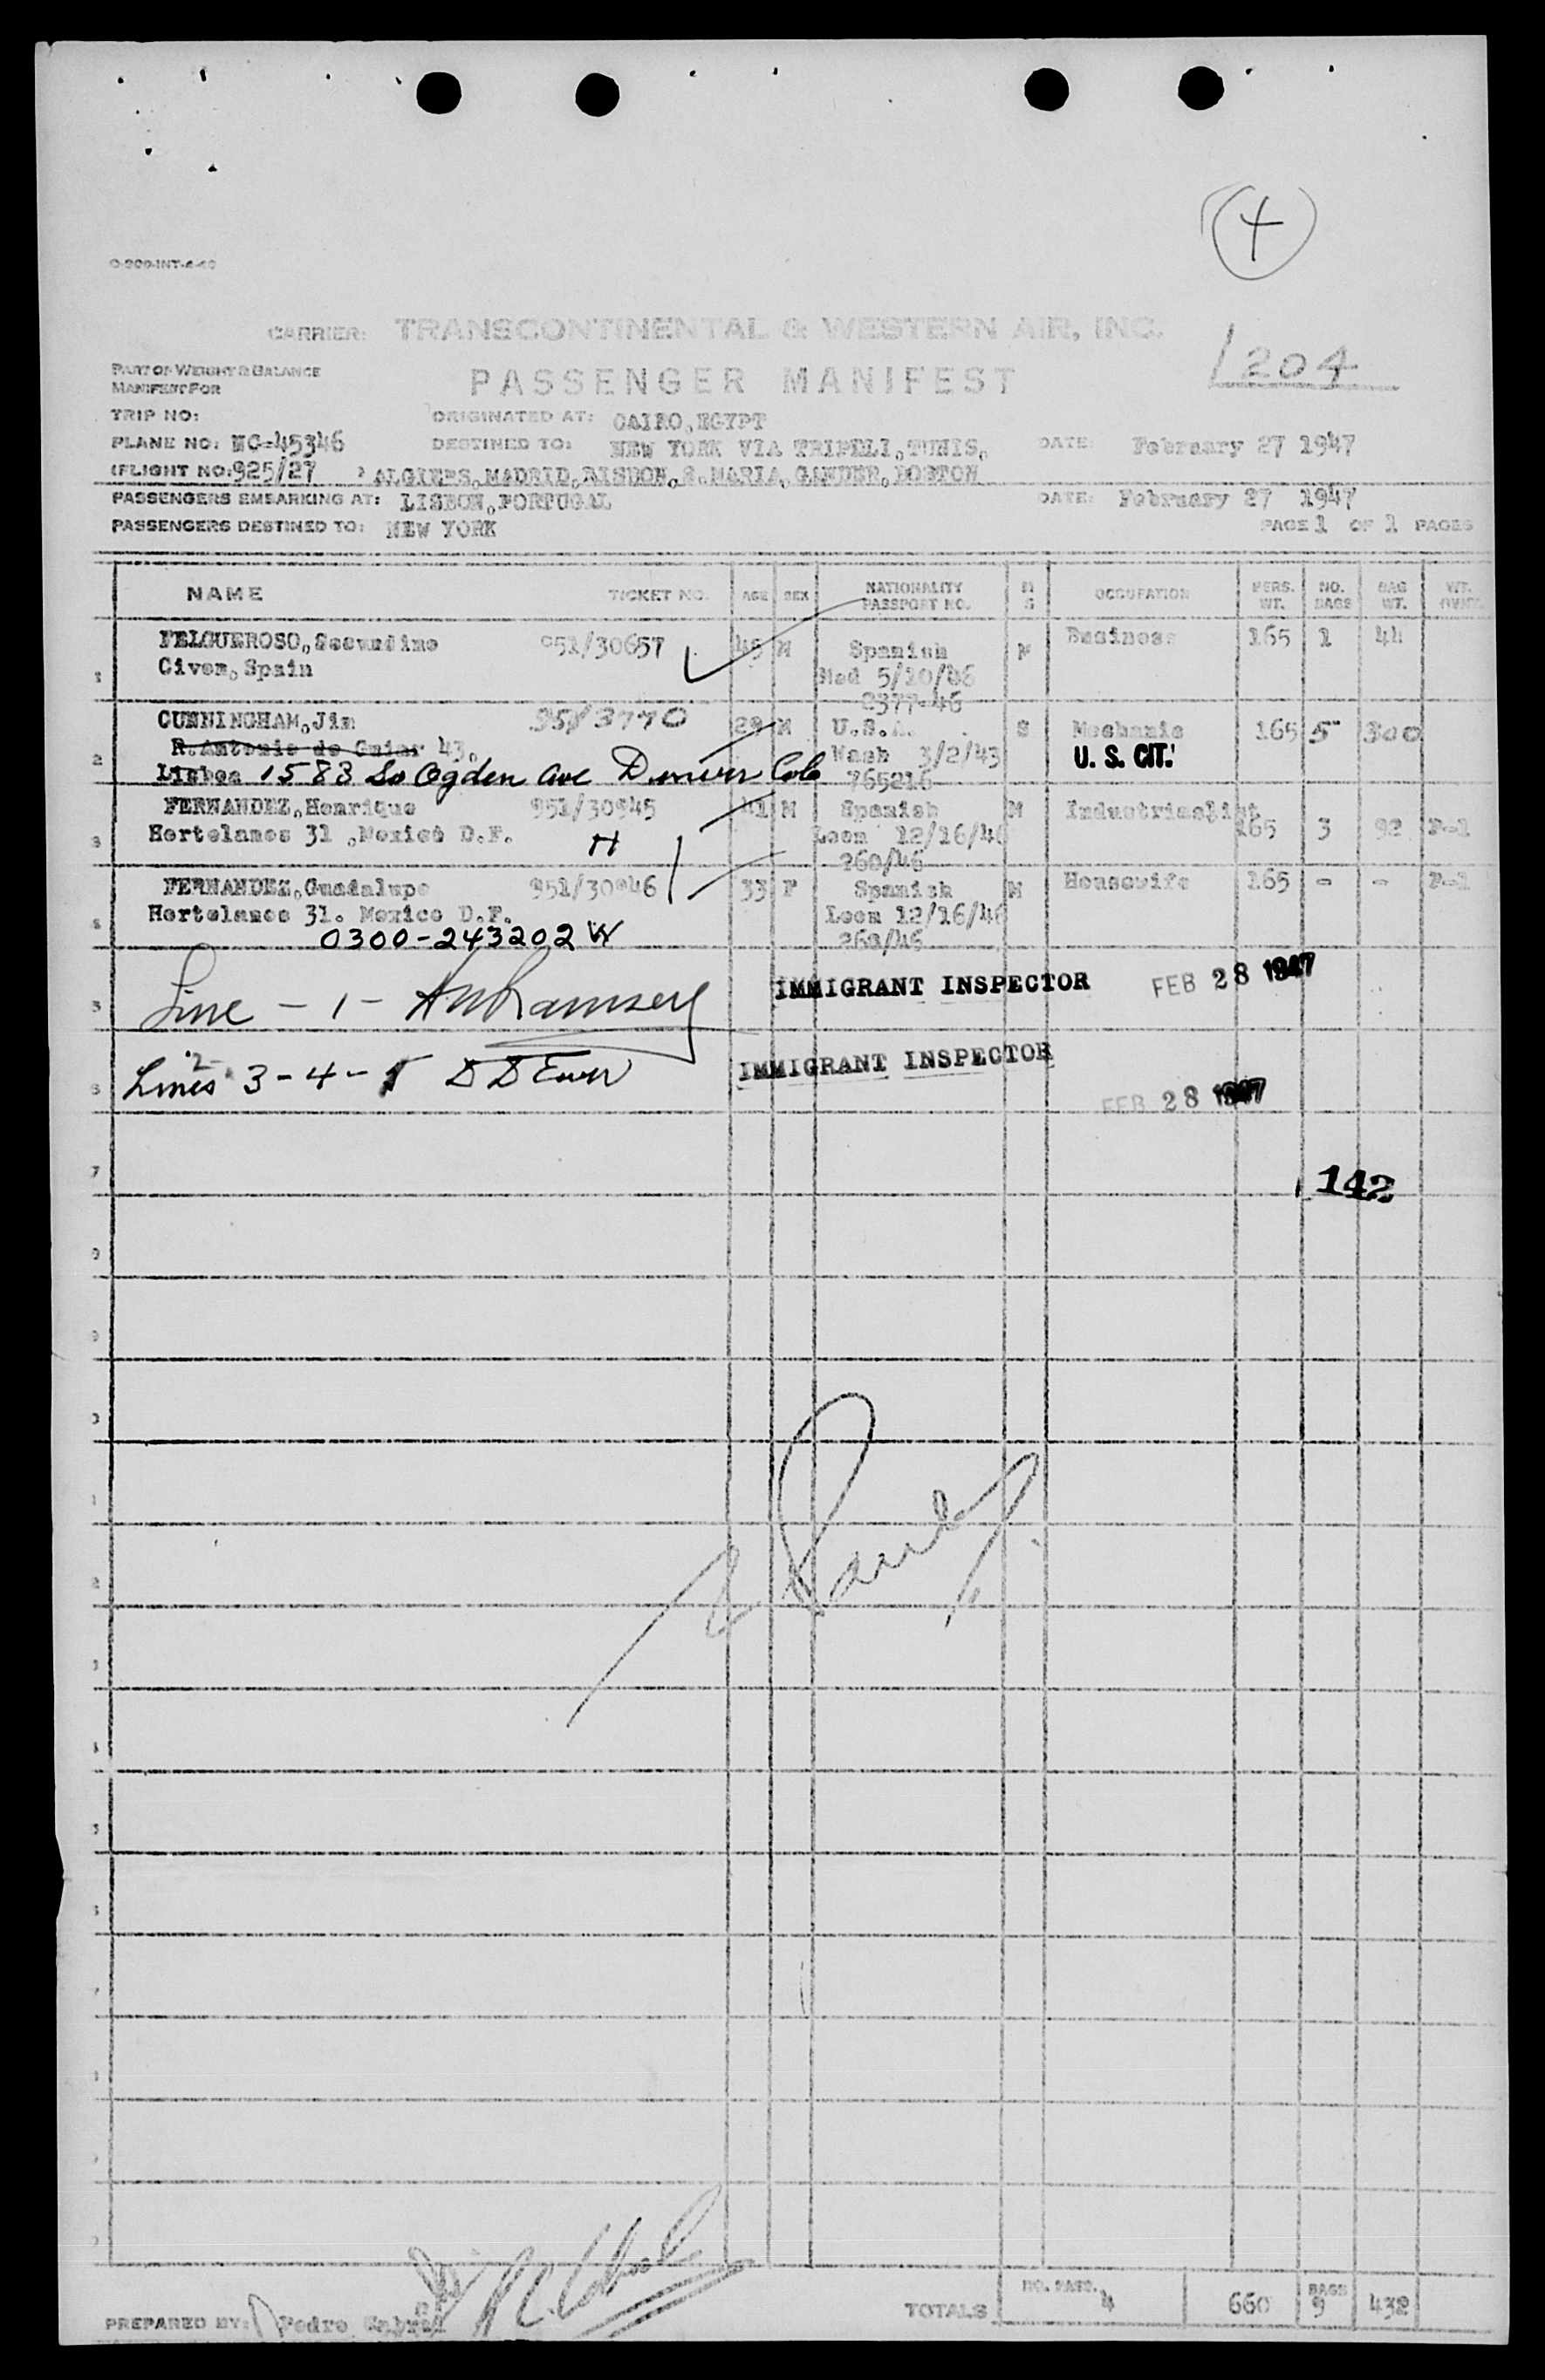 4
CARRIER: TRANSCONTINENTAL & WESTERN AIR, INC.
1204
PART OF WEIGHT & BALANCE
MANIFEST FOR
PASSENGER MANIFEST
TRIP NO:
ORIGINATED AT: CAIRO,EGYPT
PLANE NO: NC-45346
DESTINED TO: NEW YORK VIA TRIPELI,TUNIS,
DATE: February 27 1947
(FLIGHT NO: 925/27 ) ALGIERS,MADRID,LISBON,S.MARIA,GANDER,BOSTON
PASSENGERS EMBARKING AT: LISBON,PORTUGAL
DATE: February 27 1947
PASSENGERS DESTINED TO: NEW YORK
PAGE 1 OF 1 PAGES
NAME TICKET NO. AGE SEX NATIONALITY PASSPORT NO. M S OCCUPATION PERS. WT. NO. BAGS BAG WT.
1 FELGUEROSO,Secundino 951/30657 M Spanish M Business 165 1 44
Spain 5/10/46
2377-46
2 CUNNINGHAM,Jim 951/3770 M U.S.A. S Mechanic 165 5 300
43. Wash 3/2/43 U. S. CIT.
Lisbon 1583 So Ogden Ave Denver Colo 765216
3 FERNANDEZ,Henrique 951/30945 41 M Spanish M Industrialist 165 3 92 P-1
Hortelanos 31 ,Mexico D.F. H Leon 12/16/46
260/46
4 FERNANDEZ,Guadalupe 951/30946 33 F Spanish M Housewife 165 - - P-1
Hortelanos 31. Mexico D.F. Leon 12/16/46
0300-243202 W
5 Line - 1 - Ramsey IMMIGRANT INSPECTOR FEB 28 1947
6 Lines 2 3-4- IMMIGRANT INSPECTOR
FEB 28 1947
7
142
PREPARED BY: Pedro Cabral
TOTALS NO. PASS. 4 660 BAGS 9 432